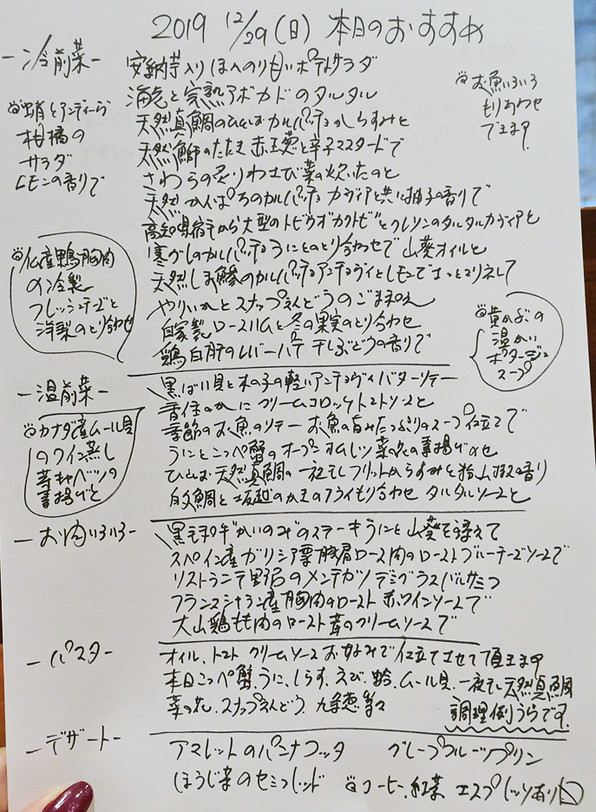 2019 12/29(日) 本日のおすすめ
-冷前菜-
安納芋入り ほんのり甘いポテトサラダ
海老と完熟アボカドのタルタル
天然真鯛のひらめカルパッチョからすみと
天然鰤のたたき 赤玉葱と辛子マスタードで
さわらの炙り わさび菜の炊いたのと
天然かんぱちのカルパッチョ カヴィアと共に柚子の香りで
高知県宿毛から大型のトビウオ"カクトビ"とクレソンのタルタルカヴィアと
寒ぶしのカルパッチョ うにとのとり合わせで 山葵オイルと
天然しま鯵のカルパッチョ アンチョヴィとレモンでまっとマリネして
やりいかとスナップえんどうのごま和え
自家製ロースハムと冬の果実のとり合わせ
鶏白肝のレバーパテ 干しぶどうの香りで
蛸とアンディーブ
柑橘の
サラダ
レモンの香りで
お魚いろいろ
もりあわせ
できます
仏産鴨胸肉
の冷製
フレッシュいちごと
洋梨のとり合わせ
黄かぶの
温かい
ポタージュ
スープ
-温前菜-
黒ばい貝と木の子の軽いアンチョヴィバターソテー
香住のかにクリームコロッケ トマトソースと
季節のお魚のソテー お魚の旨みたっぷりのスープ仕立てで
うにとこっペ蟹のオープンオムレツ 菜の花の素揚げのせ
ひらめ 天然真鯛の一夜干しフリット からすみと
白身鯛と坂越のかきのフライもり合わせ タルタルソースと
カナダ産ムール貝
のワイン蒸し
芽キャベツの
素揚げと
-お肉いろいろ-
黒毛和牛"かいのみ"のステーキ うにと山葵を添えて
スペイン産ガリシア栗豚肩ロース肉のロースト ブルーチーズソースで
リストランテ野呂のメンチカツ デミグラスバルサミコ
フランスシャラン産胸肉のロースト 赤ワインソースで
大山鶏もも肉のロースト 茸のクリームソースで
-パスタ-
オイル、トマト クリームソース お好みで仕立てさせて頂きます
本日こっペ蟹、うに、しらす、えび、蛤、ムール貝、一夜干し天然真鯛
菜の花、スナップえんどう、九条葱 等々
調理例うらです。
-デザート-
アマレットのパンナコッタ グレープフルーツプリン
ほうじ茶のセミフレッド コーヒー、紅茶 エスプレッソあり